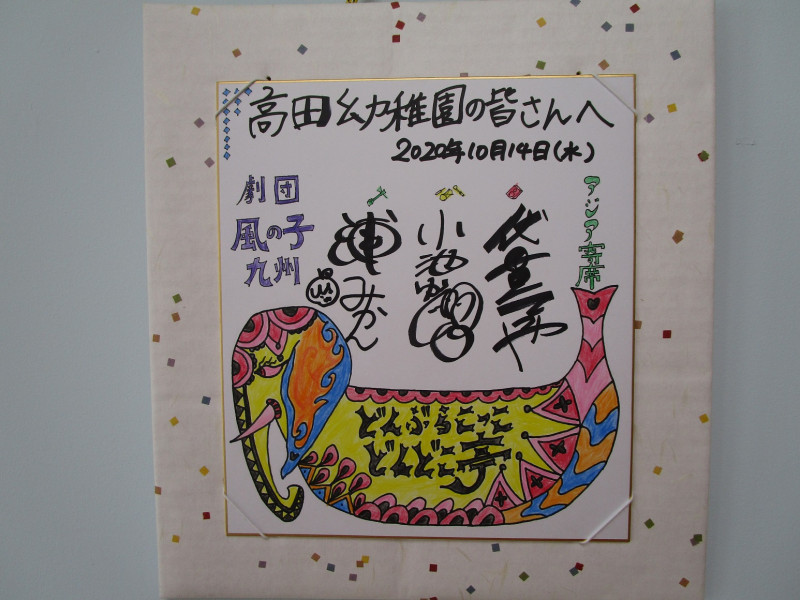 高田幼稚園の皆さんへ
2020年10月14日(水)
アジア寄席
小池
浦みかん
劇団
風の子
九州
どんぶらこっこ
どんどこ亭